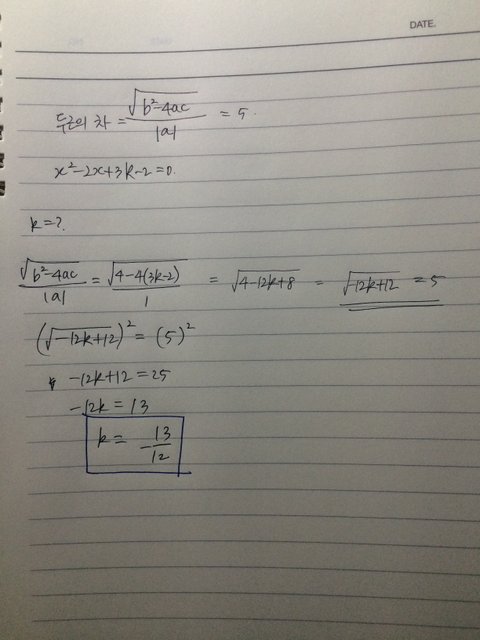 DATE.
두근의 차 = √(b²-4ac) / |a| = 5.
x²-2x+3k-2=0.
k=?
√(b²-4ac) / |a| = √(4-4(3k-2)) / 1 = √(4-12k+8) = √(-12k+12) = 5
(√(-12k+12))² = (5)²
-12k+12=25
-12k=13
k= -13/12